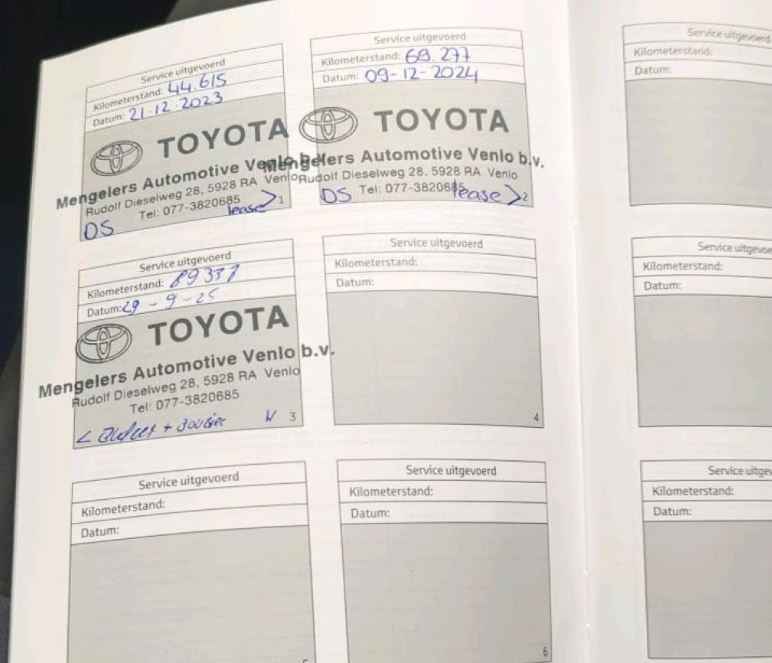 Service uitgevoerd
Kilometerstand: 44.615
Datum: 21.12.2023
TOYOTA
Mengelers Automotive Venlo b.v.
Rudolf Dieselweg 28, 5928 RA Venlo
Tel: 077-3820685
DS lease > 1
Service uitgevoerd
Kilometerstand: 69.277
Datum: 09-12-2024
TOYOTA
Mengelers Automotive Venlo b.v.
Rudolf Dieselweg 28. 5928 RA Venlo
Tel: 077-3820685
DS lease > 2
Service uitgevoerd
Kilometerstand: 89331
Datum: 29-9-25
TOYOTA
Mengelers Automotive Venlo b.v.
Rudolf Dieselweg 28, 5928 RA Venlo
Tel: 077-3820685
3
Service uitgevoerd
Kilometerstand:
Datum:
4
Service uitgevoerd
Kilometerstand:
Datum:
Service uitgevoerd
Kilometerstand:
Datum:
6
Service uitgevoerd
Kilometerstand:
Datum:
Service uitgevoe
Kilometerstand:
Datum:
Service uitgev
Kilometerstand:
Datum: